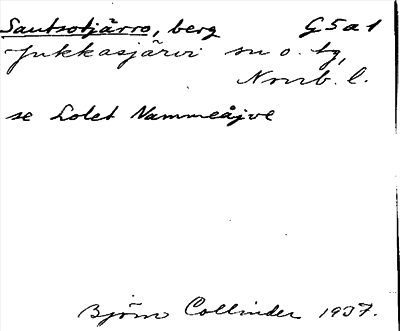 Sautsotjärro, berg G5a1
Jukkasjärvi sn o. tg,
Norrb. l.
se Lolet Nammeåjve
Björn Collinder 1937.